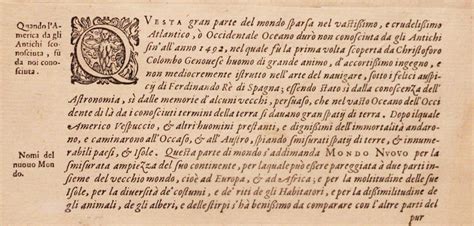 Quando l'A-
merica da gli
Antichi sco-
nosciuta, fù
da noi cono-
sciuta.
QVESTA gran parte del mondo sparsa nel vastissimo, e crudelissimo
Atlantico, ò Occidentale Oceano durò non conosciuta da gli Antichi
fin'all'anno 1492, nel quale fù la prima volta scoperta da Christoforo
Colombo Genouese huomo di grande animo, d'accortissimo ingegno, e
non mediocremente istrutto nell'arte del nauigare, sotto i felici auspi-
cij di Ferdinando Rè di Spagna; essendo stato sì dalla conoscenza dell'
Astronomia, sì dalle memorie d'alcuni vecchi, persuaso, che nel vasto Oceano dell'Occi
dente di là da i conosciuti termini della terra si dauano gran spatij di terra. Dopo il quale
Americo Vespuccio, & altri huomini prestanti, e dignissimi dell'immortalità andaro-
no, e caminarono all'Occaso, & all'Austro, spiando smisurati spatij di terra, e innume-
rabili paesi, & Isole. Questa parte di mondo s'addimanda MONDO NVOVO per la
smisurata ampiezza del suo continente, per la quale può essere pareggiata à due parti in-
sieme del vecchio mondo, cioè ad Europa, & ad Africa; e per la moltitudine delle sue
Isole, per la diuersità de' costumi, e de' riti de gli Habitatori, e per la dissimilitudine de
gli animali, de gli alberi, e delle stirpi s'hà benissimo da comparare con l'altre parti del
pur
Nomi del
nuouo Mon
do.